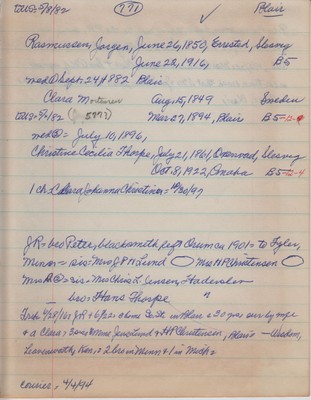 771
Blair
Rasmussen, Jorgen, June 26, 1850, Ersted, Slesvig
June 22, 1916, B5
med ① Sept. 24, 1882 Blair
Clara Mortensen Aug 15, 1849 Sweden
Mar 27, 1894, Blair B5
med ② = July 10, 1896,
Christine Cecilia Thorpe, July 21, 1861, Slesvig
Oct. 8, 1922, Omaha B5
1 ch. Clara Johanna Christine
JR = bro Peter, blacksmith, left 1901 = to Tyler,
Minn = sis = Mrs J P M Lund Mrs HP Christensen
Mrs R ② = sis = Mrs Chris L. Jensen, Haderslev
— bro: Hans Thorpe "
Trib 6/28/16: JR + 6/22 = home So. St. in Blair = 30 yrs
+ a Clara = Mmes Jens Lund + HP Christensen, Blair =
Leavenworth, Kan, = 2 bro in Minn + 1 in Mich =
4/4/94